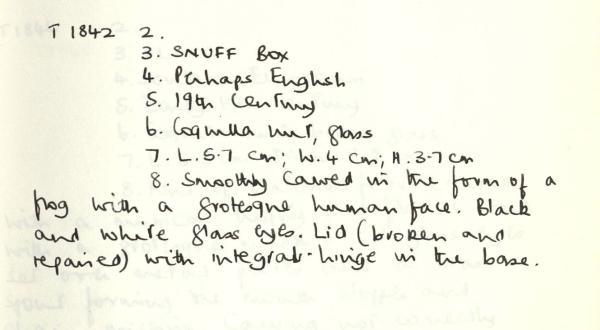 T 1842 2.
3. SNUFF BOX
4. Perhaps English
5. 19th Century
6. Coquilla nut, glass
7. L. 5.7 cm; W. 4 cm; H. 3.7 cm
8. Smoothly carved in the form of a
frog with a grotesque human face. Black
and white glass eyes. Lid (broken and
repaired) with integral-hinge in the base.